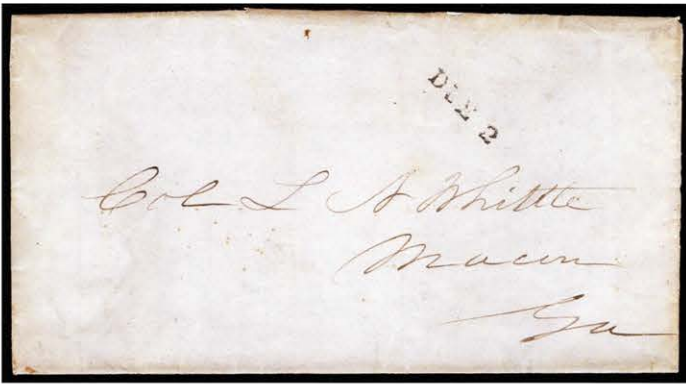 DUE 2
Col L N Whittle
Macon
Ga